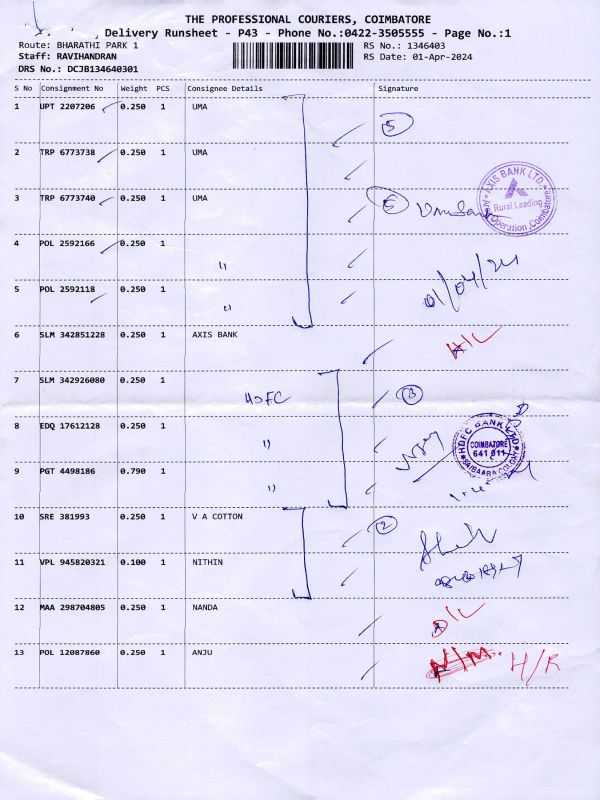 THE PROFESSIONAL COURIERS, COIMBATORE
Delivery Runsheet - P43 - Phone No.:0422-3505555 - Page No.:1
Route: BHARATHI PARK 1 RS No.: 1346403
Staff: RAVIHANDRAN RS Date: 01-Apr-2024
DRS No.: DCJB134640301
S No Consignment No Weight PCS Consignee Details Signature
1 UPT 2207206 0.250 1 UMA
5
2 TRP 6773738 0.250 1 UMA
3 TRP 6773740 0.250 1 UMA
AXIS BANK LTD.
Rural Leading
Operation, Coimbatore
4 POL 2592166 0.250 1 "
5 POL 2592118 0.250 1 "
01/04/24
6 SLM 342851228 0.250 1 AXIS BANK
7 SLM 342926080 0.250 1 HDFC
3
8 EDQ 17612128 0.250 1 "
HDFC BANK LTD
COIMBATORE
641 011
SAIBAABA COLONY
9 PGT 4498186 0.790 1 "
10 SRE 381993 0.250 1 V A COTTON
2
11 VPL 945820321 0.100 1 NITHIN
12 MAA 298704805 0.250 1 NANDA
13 POL 12087860 0.250 1 ANJU
H/R